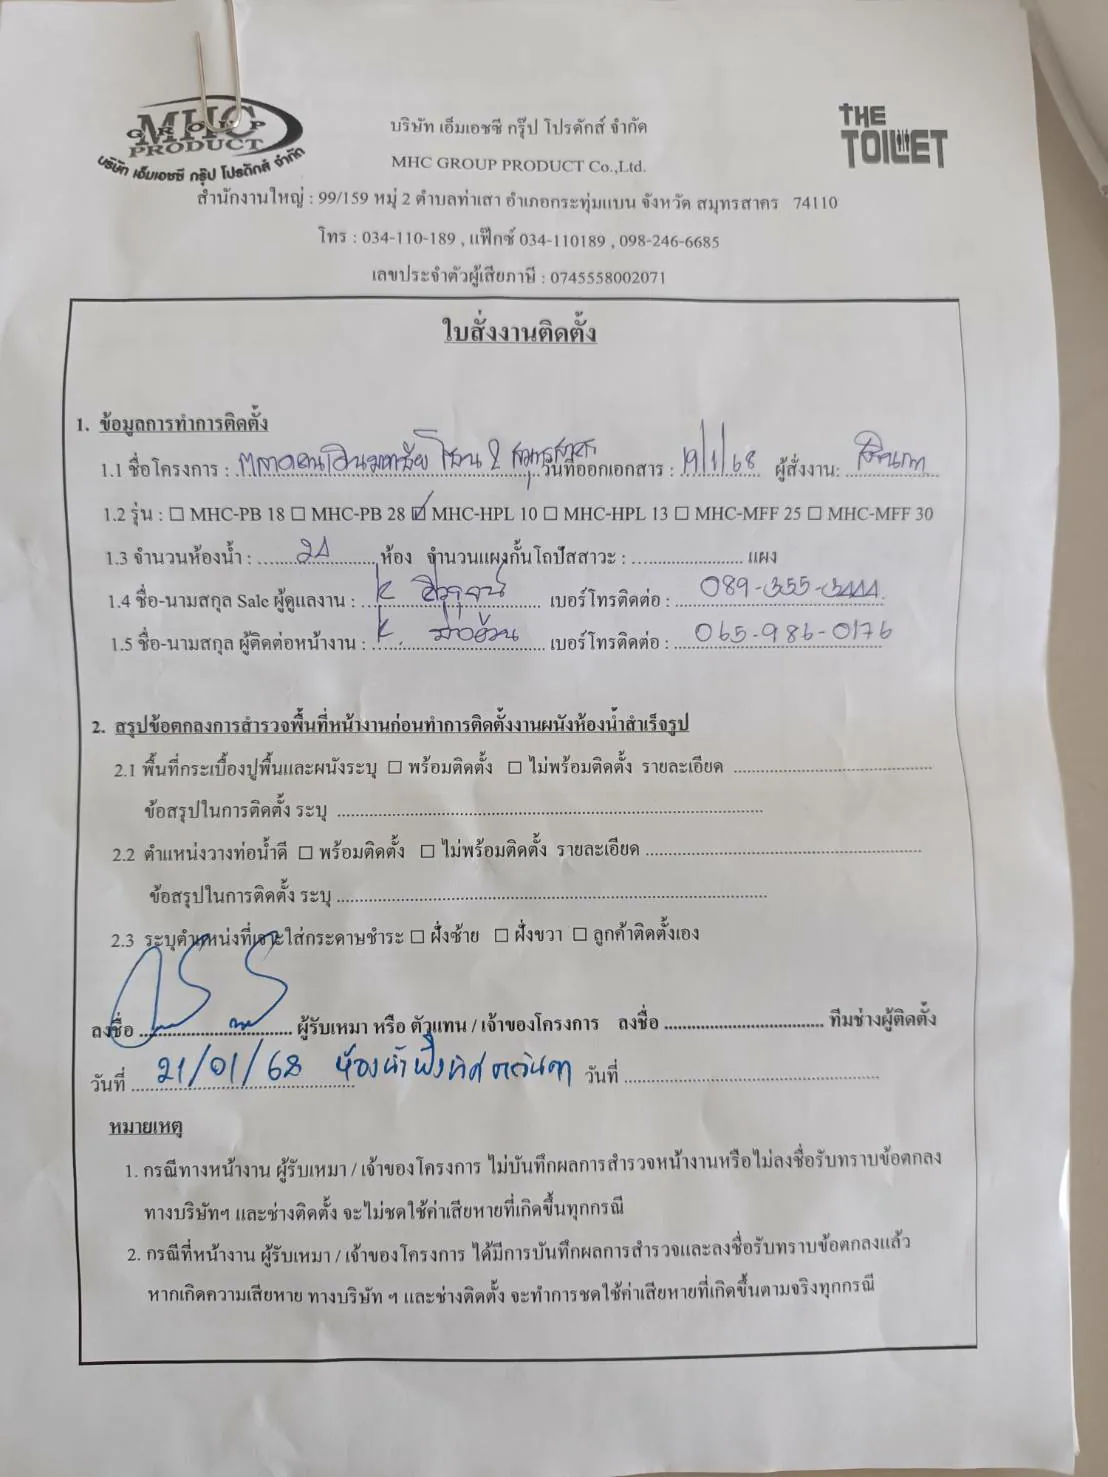 MHC
GROUP
PRODUCT
บริษัท เอ็มเอชซี กรุ๊ป โปรดักส์ จำกัด
THE
TOILET
บริษัท เอ็มเอชซี กรุ๊ป โปรดักส์ จำกัด
MHC GROUP PRODUCT Co.,Ltd.
สำนักงานใหญ่ : 99/159 หมู่ 2 ตำบลท่าเสา อำเภอกระทุ่มแบน จังหวัด สมุทรสาคร 74110
โทร : 034-110-189 , แฟ๊กซ์ 034-110189 , 098-246-6685
เลขประจำตัวผู้เสียภาษี : 0745558002071
ใบสั่งงานติดตั้ง
1. ข้อมูลการทำการติดตั้ง
1.1 ชื่อโครงการ : โซน 2 สมุทรสาคร วันที่ออกเอกสาร : 19/1/68 ผู้สั่งงาน:
1.2 รุ่น : ☐ MHC-PB 18 ☐ MHC-PB 28 ☑ MHC-HPL 10 ☐ MHC-HPL 13 ☐ MHC-MFF 25 ☐ MHC-MFF 30
1.3 จำนวนห้องน้ำ : ห้อง จำนวนแผงกั้นโถปัสสาวะ : แผง
1.4 ชื่อ-นามสกุล Sale ผู้ดูแลงาน : K เบอร์โทรติดต่อ : 089-355-3444
1.5 ชื่อ-นามสกุล ผู้ติดต่อหน้างาน : K เบอร์โทรติดต่อ : 065-986-0176
2. สรุปข้อตกลงการสำรวจพื้นที่หน้างานก่อนทำการติดตั้งงานผนังห้องน้ำสำเร็จรูป
2.1 พื้นที่กระเบื้องปูพื้นและผนังระบุ ☐ พร้อมติดตั้ง ☐ ไม่พร้อมติดตั้ง รายละเอียด
ข้อสรุปในการติดตั้ง ระบุ
2.2 ตำแหน่งวางท่อน้ำดี ☐ พร้อมติดตั้ง ☐ ไม่พร้อมติดตั้ง รายละเอียด
ข้อสรุปในการติดตั้ง ระบุ
2.3 ระบุตำแหน่งที่เจาะใส่กระดาษชำระ ☐ ฝั่งซ้าย ☐ ฝั่งขวา ☐ ลูกค้าติดตั้งเอง
ลงชื่อ ผู้รับเหมา หรือ ตัวแทน / เจ้าของโครงการ ลงชื่อ ทีมช่างผู้ติดตั้ง
วันที่ 21/01/68 ห้องน้ำฝั่งทิศตะวันตก วันที่
หมายเหตุ
1. กรณีทางหน้างาน ผู้รับเหมา / เจ้าของโครงการ ไม่บันทึกผลการสำรวจหน้างานหรือไม่ลงชื่อรับทราบข้อตกลง
ทางบริษัทฯ และช่างติดตั้ง จะไม่ชดใช้ค่าเสียหายที่เกิดขึ้นทุกกรณี
2. กรณีที่หน้างาน ผู้รับเหมา / เจ้าของโครงการ ได้มีการบันทึกผลการสำรวจและลงชื่อรับทราบข้อตกลงแล้ว
หากเกิดความเสียหาย ทางบริษัท ฯ และช่างติดตั้ง จะทำการชดใช้ค่าเสียหายที่เกิดขึ้นตามจริงทุกกรณี